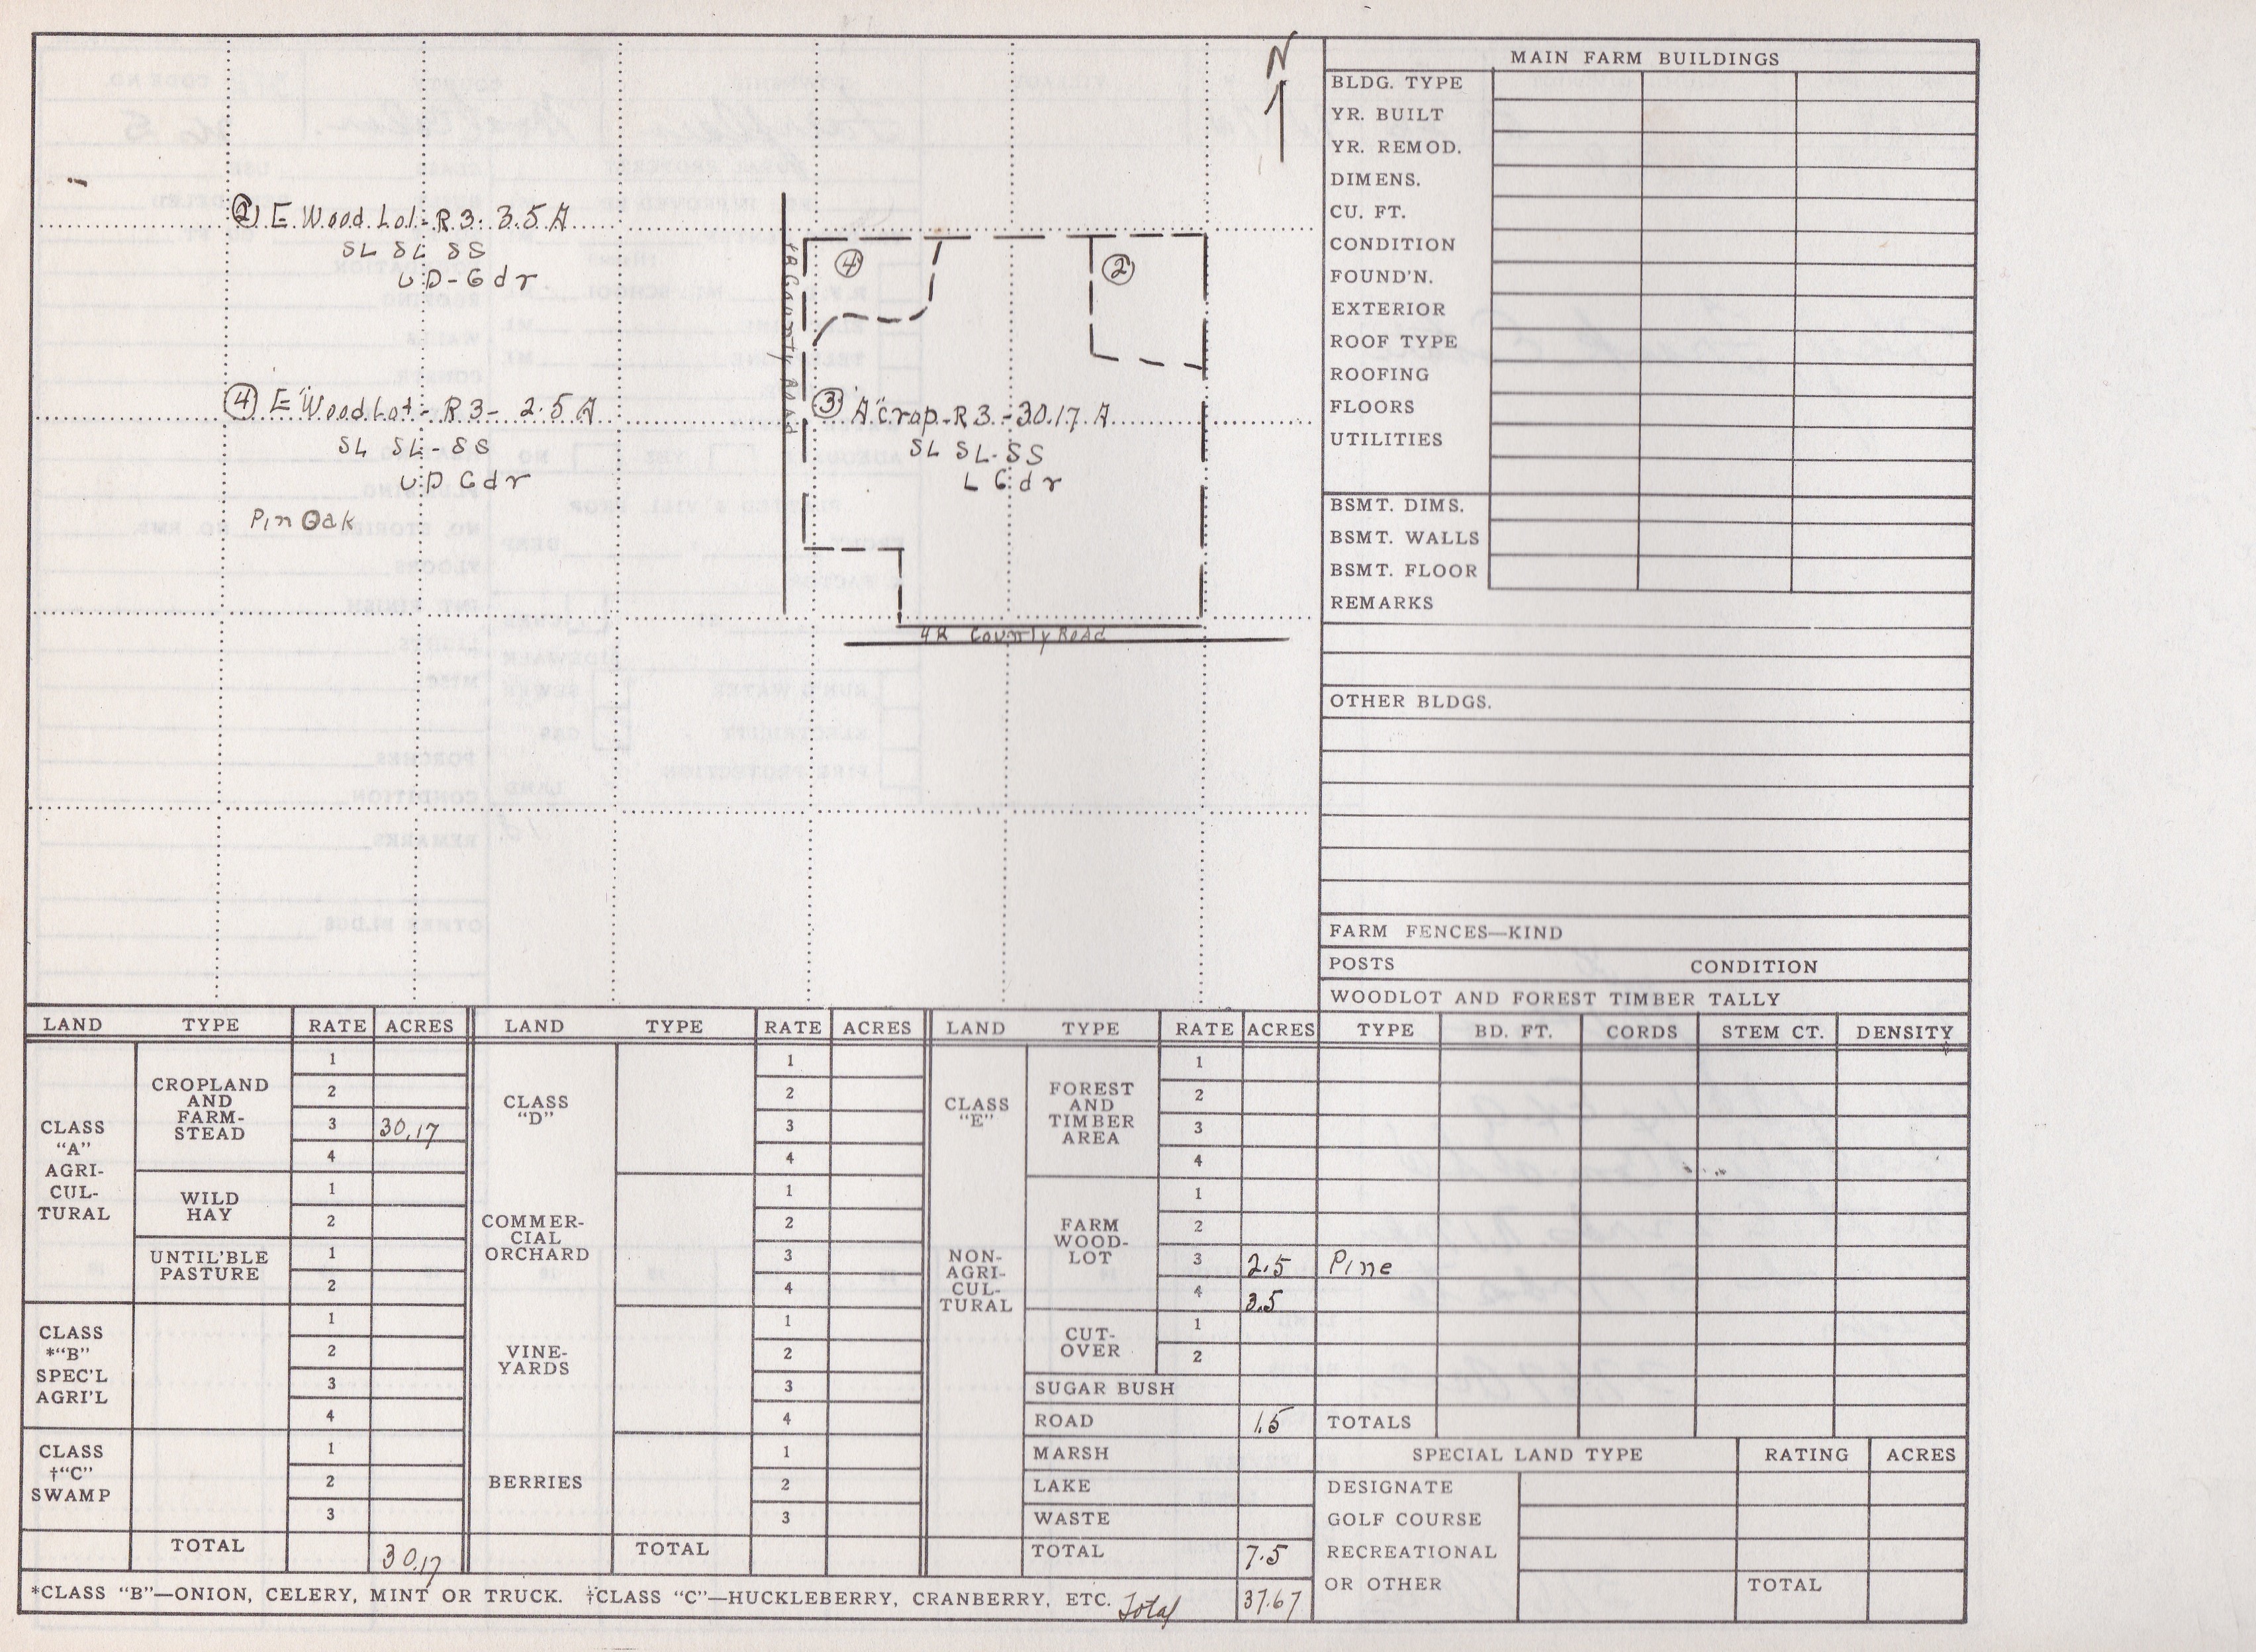 N
② E Wood Lot - R 3 - 3.5 A
SL SL SS
UD - Gdr
④ E Wood Lot - R 3 - 2.5 A
SL SL - SS
UD Gdr
Pin Oak
④
②
4R County Road
③ A Crop - R 3 - 30.17 A
SL SL - SS
L Gdr
4R County Road
MAIN FARM BUILDINGS
BLDG. TYPE
YR. BUILT
YR. REMOD.
DIMENS.
CU. FT.
CONDITION
FOUND'N.
EXTERIOR
ROOF TYPE
ROOFING
FLOORS
UTILITIES
BSMT. DIMS.
BSMT. WALLS
BSMT. FLOOR
REMARKS
OTHER BLDGS.
FARM FENCES—KIND
POSTS CONDITION
WOODLOT AND FOREST TIMBER TALLY
TYPE BD. FT. CORDS STEM CT. DENSITY
Pine
TOTALS
SPECIAL LAND TYPE RATING ACRES
DESIGNATE
GOLF COURSE
RECREATIONAL
OR OTHER TOTAL
LAND TYPE RATE ACRES
CLASS
"A"
AGRI-
CUL-
TURAL
CROPLAND
AND
FARM-
STEAD
1
2
3 30.17
4
WILD
HAY
1
2
UNTIL'BLE
PASTURE
1
2
CLASS
*"B"
SPEC'L
AGRI'L
1
2
3
4
CLASS
†"C"
SWAMP
1
2
3
TOTAL 30.17
LAND TYPE RATE ACRES
CLASS
"D"
1
2
3
4
COMMER-
CIAL
ORCHARD
1
2
3
4
VINE-
YARDS
1
2
3
4
BERRIES
1
2
3
TOTAL
LAND TYPE RATE ACRES
CLASS
"E"
NON-
AGRI-
CUL-
TURAL
FOREST
AND
TIMBER
AREA
1
2
3
4
FARM
WOOD-
LOT
1
2
3 2.5
4 3.5
CUT-
OVER
1
2
SUGAR BUSH
ROAD 1.5
MARSH
LAKE
WASTE
TOTAL 7.5
*CLASS "B"—ONION, CELERY, MINT OR TRUCK. †CLASS "C"—HUCKLEBERRY, CRANBERRY, ETC. Total 37.67